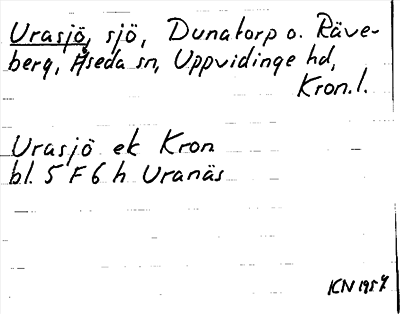 Urasjö, sjö, Dunatorp o. Räve-
berg, Åseda sn, Uppvidinge hd,
Kron.l.
Urasjö ek Kron
bl. 5 F 6 h Uranäs
KN 1957